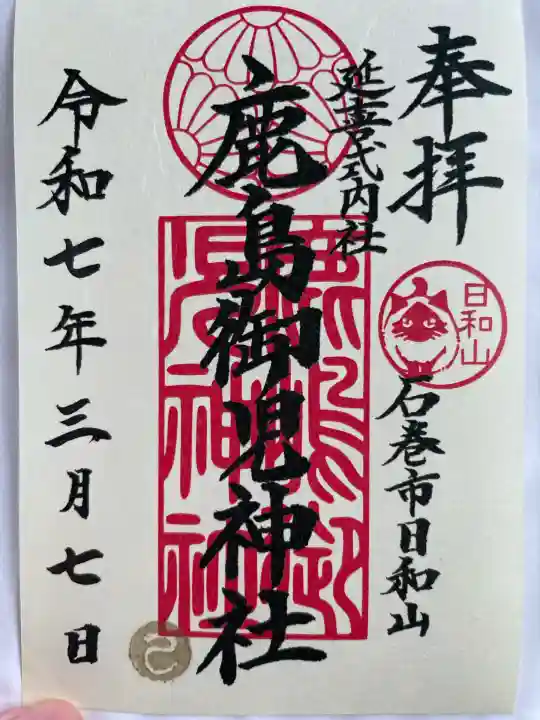 奉拝
日和山
石巻市日和山
延喜式内社
鹿島御児神社
鹿島御
児神社
令和七年三月七日